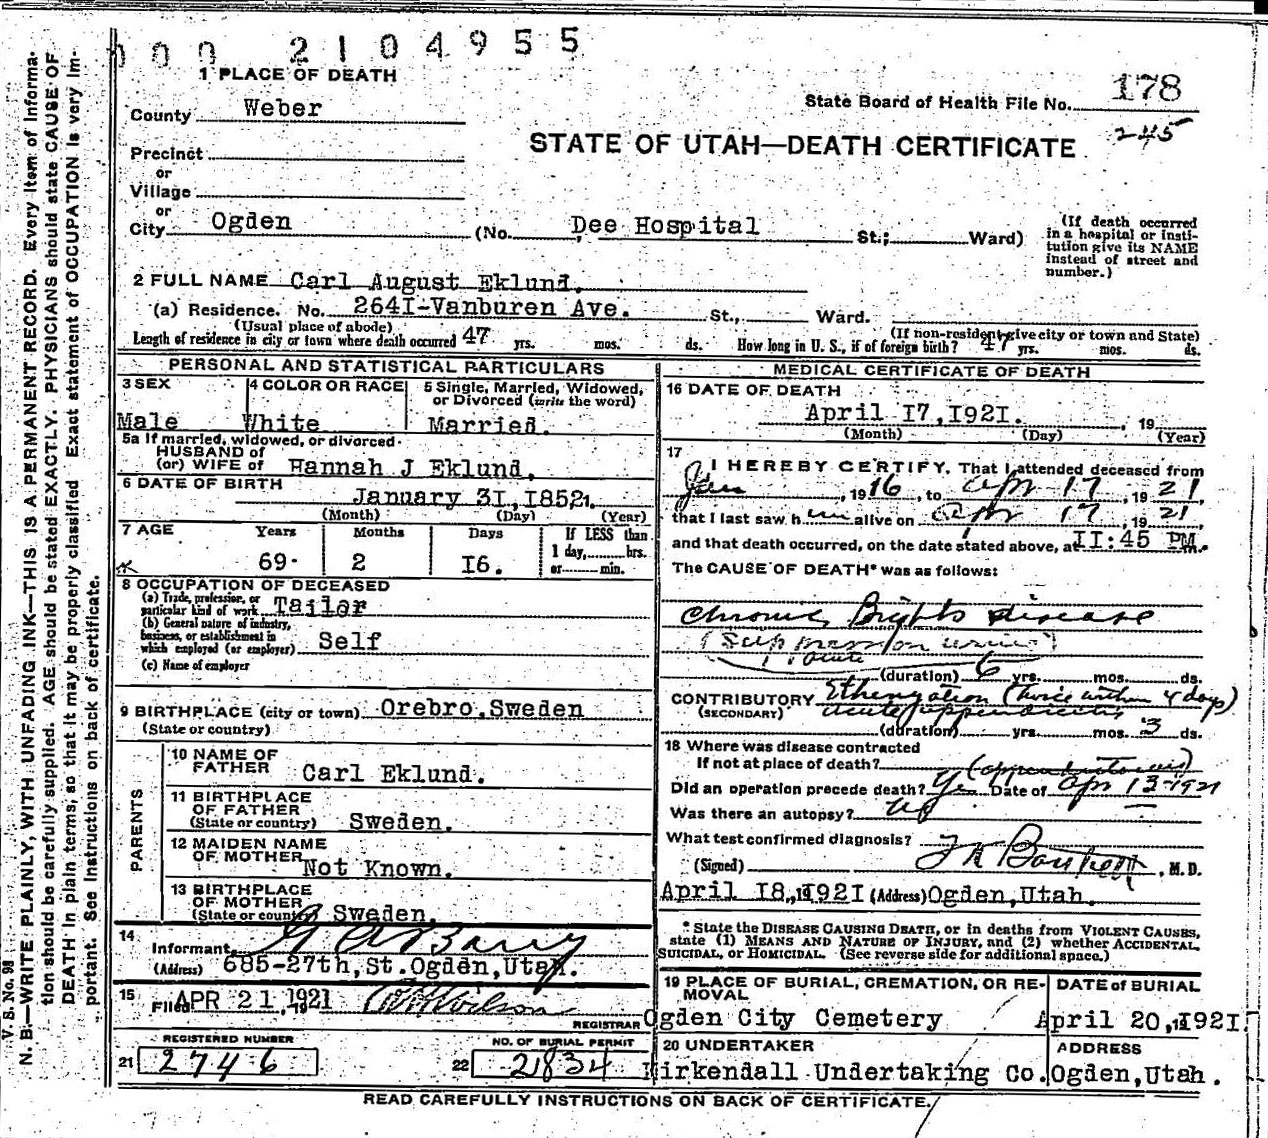 000 2104955
1 PLACE OF DEATH
County Weber
State Board of Health File No. 178
245
STATE OF UTAH—DEATH CERTIFICATE
Precinct
or
Village
or
City Ogden (No. Dee Hospital St.; Ward)
(If death occurred in a hospital or institution give its NAME instead of street and number.)
2 FULL NAME Carl August Eklund.
(a) Residence. No. 2641-Vanburen Ave. St., Ward.
(Usual place of abode) (If non-resident give city or town and State)
Length of residence in city or town where death occurred 47 yrs. mos. ds. How long in U. S., if of foreign birth? 47 yrs. mos. ds.
PERSONAL AND STATISTICAL PARTICULARS
3 SEX 4 COLOR OR RACE 5 Single, Married, Widowed, or Divorced (write the word)
Male White Married.
5a If married, widowed, or divorced
HUSBAND of
(or) WIFE of Hannah J Eklund.
6 DATE OF BIRTH
January 31, 1852.
(Month) (Day) (Year)
7 AGE Years Months Days If LESS than 1 day, hrs. or min.
69 2 16.
8 OCCUPATION OF DECEASED
(a) Trade, profession, or particular kind of work Tailor
(b) General nature of industry, business, or establishment in which employed (or employer) Self
(c) Name of employer
9 BIRTHPLACE (city or town) Orebro, Sweden
(State or country)
PARENTS
10 NAME OF FATHER Carl Eklund.
11 BIRTHPLACE OF FATHER (State or country) Sweden.
12 MAIDEN NAME OF MOTHER Not Known.
13 BIRTHPLACE OF MOTHER (State or country) Sweden.
14
Informant
(Address) 685-27th, St. Ogden, Utah.
15
Filed APR 21 1921, 19
REGISTRAR
REGISTERED NUMBER
21 2746
NO. OF BURIAL PERMIT
22 2834
MEDICAL CERTIFICATE OF DEATH
16 DATE OF DEATH
April 17, 1921. , 19
(Month) (Day) (Year)
17
I HEREBY CERTIFY, That I attended deceased from
Jan , 1916, to Apr 17, 1921,
that I last saw him alive on Apr 17, 1921
and that death occurred, on the date stated above, at 11:45 PM.
The CAUSE OF DEATH* was as follows:
Chronic Brights disease
(Suppression urine)
acute
(duration) 6 yrs. mos. ds.
CONTRIBUTORY Etherization (twice within 4 days)
(SECONDARY) acute appendicitis
(duration) yrs. mos. 3 ds.
18 Where was disease contracted
If not at place of death?
Did an operation precede death? Yes Date of Apr 13-1921
Was there an autopsy? No
What test confirmed diagnosis?
(Signed) , M. D.
April 18, 1921 (Address) Ogden, Utah.
* State the DISEASE CAUSING DEATH, or in deaths from VIOLENT CAUSES, state (1) MEANS AND NATURE OF INJURY, and (2) whether ACCIDENTAL, SUICIDAL, or HOMICIDAL. (See reverse side for additional space.)
19 PLACE OF BURIAL, CREMATION, OR REMOVAL
Ogden City Cemetery
DATE OF BURIAL
April 20, 1921.
20 UNDERTAKER
Kirkendall Undertaking Co.
ADDRESS
Ogden, Utah.
READ CAREFULLY INSTRUCTIONS ON BACK OF CERTIFICATE.
V. S. No. 98
N. B.—WRITE PLAINLY, WITH UNFADING INK—THIS IS A PERMANENT RECORD. Every item of information should be carefully supplied. AGE should be stated EXACTLY. PHYSICIANS should state CAUSE OF DEATH in plain terms, so that it may be properly classified. Exact statement of OCCUPATION is very important. See instructions on back of certificate.